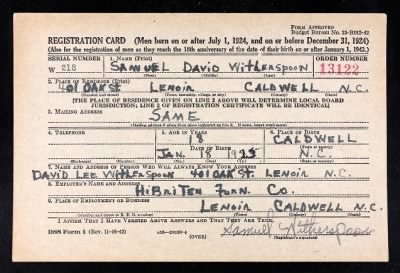 FORM APPROVED
Budget Bureau No. 33-R012-42
REGISTRATION CARD (Men born on or after July 1, 1924, and on or before December 31, 1924)
(Also for the registration of men as they reach the 18th anniversary of the date of their birth on or after January 1, 1943.)
SERIAL NUMBER 1. NAME (Print) ORDER NUMBER
W 218 SAMUEL DAVID WITHERSPOON 13122
(First) (Middle) (Last)
2. PLACE OF RESIDENCE (Print)
401 OAK ST LENOIR CALDWELL N.C.
(Number and street) (Town, township, village, or city) (County) (State)
[THE PLACE OF RESIDENCE GIVEN ON LINE 2 ABOVE WILL DETERMINE LOCAL BOARD
JURISDICTION; LINE 2 OF REGISTRATION CERTIFICATE WILL BE IDENTICAL]
3. MAILING ADDRESS
SAME
(Mailing address if other than place indicated on line 2. If same, insert word same)
4. TELEPHONE 5. AGE IN YEARS 6. PLACE OF BIRTH
18 CALDWELL
DATE OF BIRTH
JAN. 8 N.C.
7. NAME AND ADDRESS OF PERSON WHO WILL ALWAYS KNOW YOUR ADDRESS
DAVID LEE WITHERSPOON 401 OAK ST. LENOIR N.C.
8. EMPLOYER'S NAME AND ADDRESS
HIBRITEN FURN. CO.
9. PLACE OF EMPLOYMENT OR BUSINESS
LENOIR CALDWELL N.C.
(Number and street or R. F. D. number) (Town) (County) (State)
I AFFIRM THAT I HAVE VERIFIED ABOVE ANSWERS AND THAT THEY ARE TRUE.
DSS Form 1 (Rev. 11-16-42) (OVER) Samuel Witherspoon